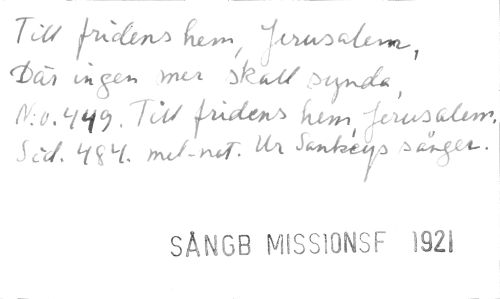 Till fridens hem, Jerusalem,
Där ingen mer skall synda,
N:o. 449. Till fridens hem, Jerusalem.
Sid. 484. mel-not. Ur Sankeys sånger.
SÅNGB MISSIONSF 1921